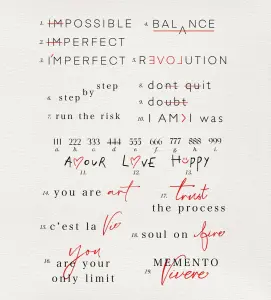 1. IMPOSSIBLE
2. IMPERFECT
3. I'MPERFECT
4. BALANCE
5. REVOLUTION
6. step by step
7. run the risk
8. dont quit
9. doubt
10. I AM > I was
111 222 333 444 555 666 777 888 999
a b c d e f g h i
AMOUR LOVE Happy
11. 12. 13.
14. you are art
15. c'est la Vie
16. you
are your
only limit
17. trust
the process
18. soul on fire
19. MEMENTO
Vivere